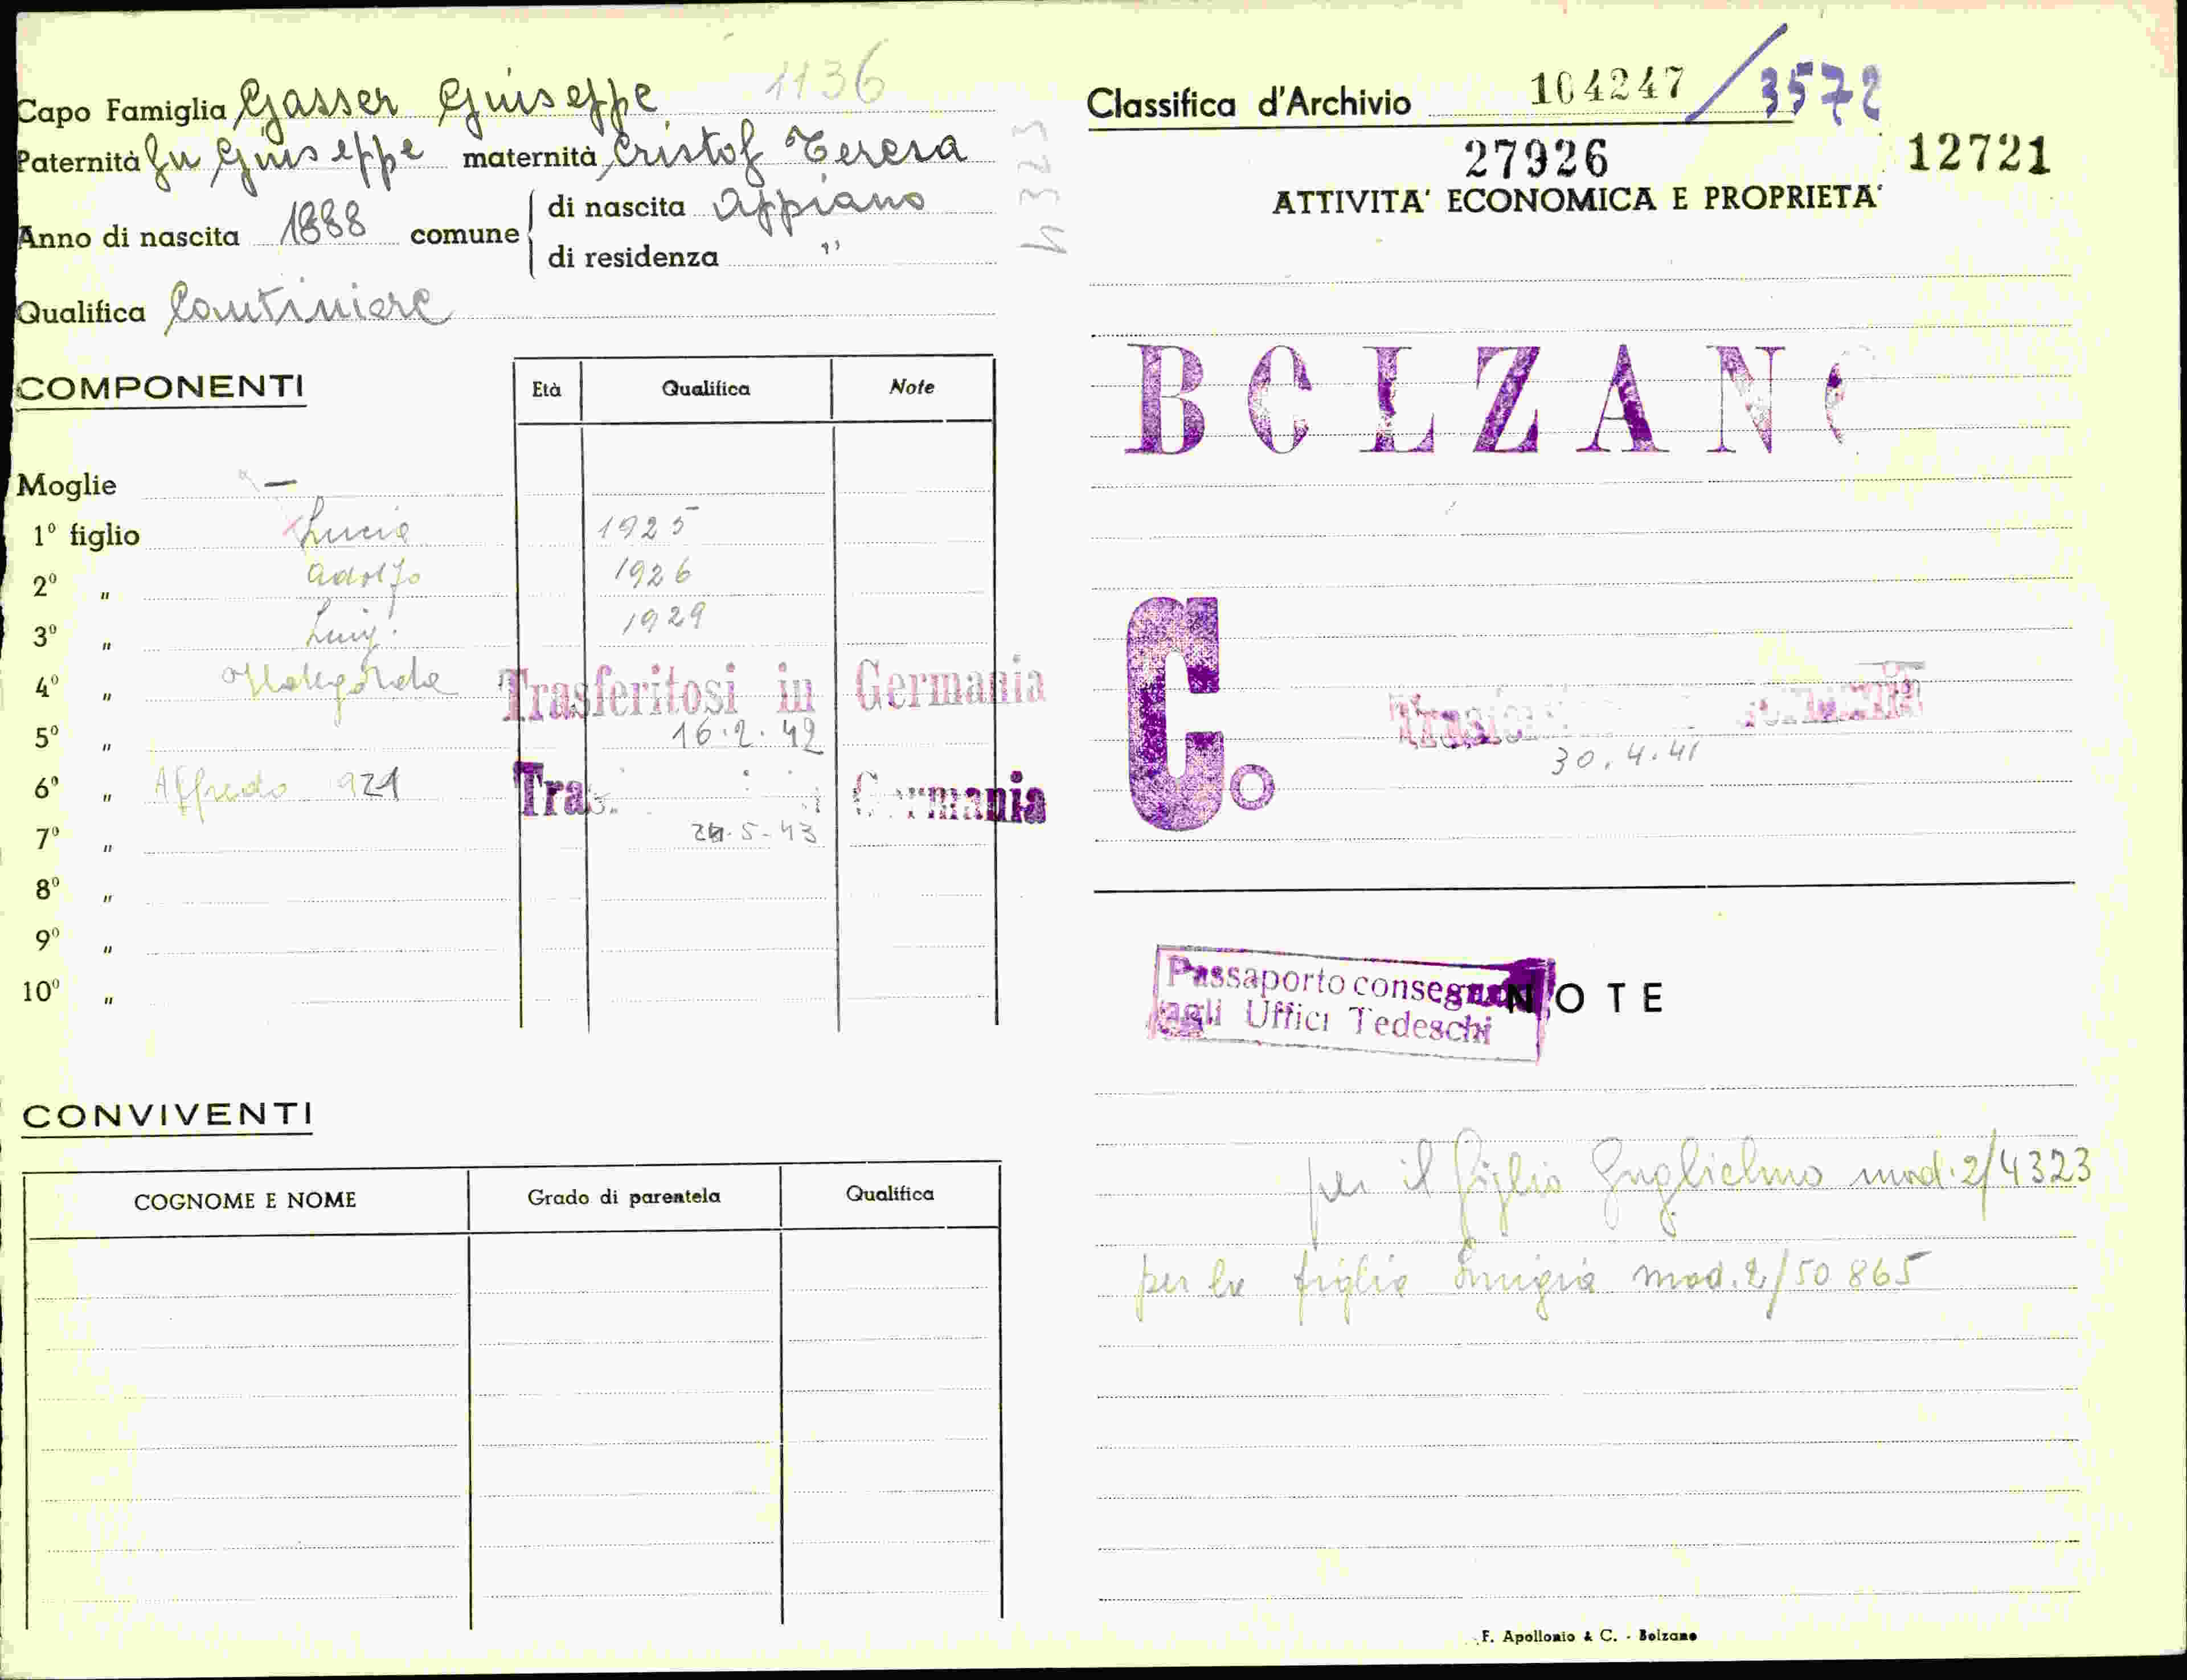 1136
Capo Famiglia Gasser Giuseppe
Paternità fu Giuseppe maternità Cristof Teresa
Anno di nascita 1888 comune di nascita Appiano
di residenza "
Qualifica Cantiniere
4323
COMPONENTI Età Qualifica Note
Moglie —
1º figlio Lucia 1925
2º " Adolfo 1926
3º " Luigi 1929
4º " Trasferitosi in Germania
5º " 16.2.42
6º " Alfredo 921 Germania
7º " 5-43
8º "
9º "
10º "
CONVIVENTI
COGNOME E NOME Grado di parentela Qualifica
Classifica d'Archivio 104247 / 3572
27926 12721
ATTIVITA' ECONOMICA E PROPRIETA'
BOLZANO
C.
30.4.41
Passaporto consegnato
agli Uffici Tedeschi
NOTE
per il figlio Guglielmo mod. 2/4323
per la figlia Luigia mod. 2/50865
F. Apollonio & C. - Bolzano